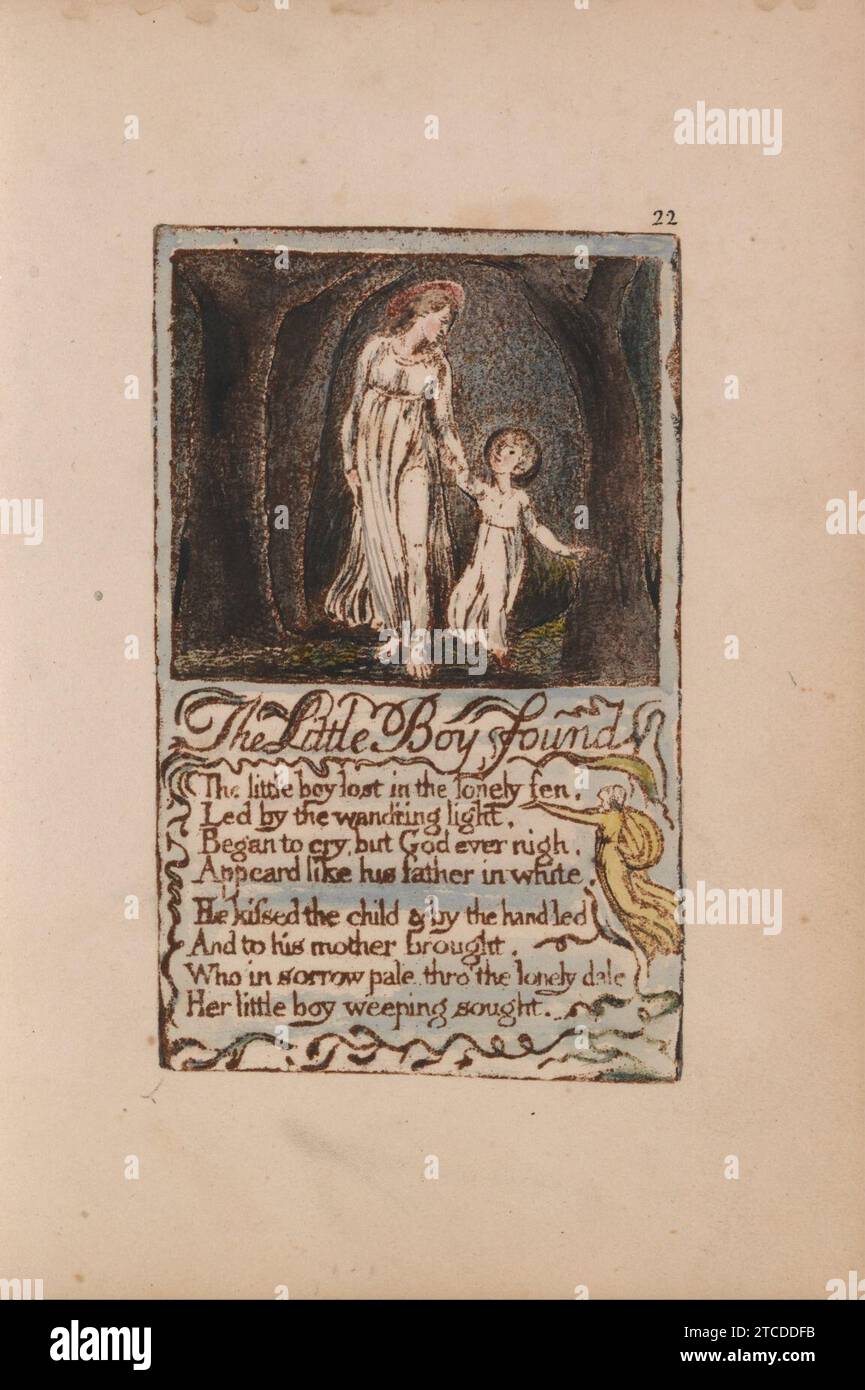 22
The Little Boy found
The little boy lost in the lonely fen,
Led by the wandring light,
Began to cry, but God ever nigh,
Appeard like his father in white.
He kissed the child & by the hand led
And to his mother brought,
Who in sorrow pale, thro' the lonely dale
Her little boy weeping sought.
alamy
Image ID: 2TCDDFB
www.alamy.com